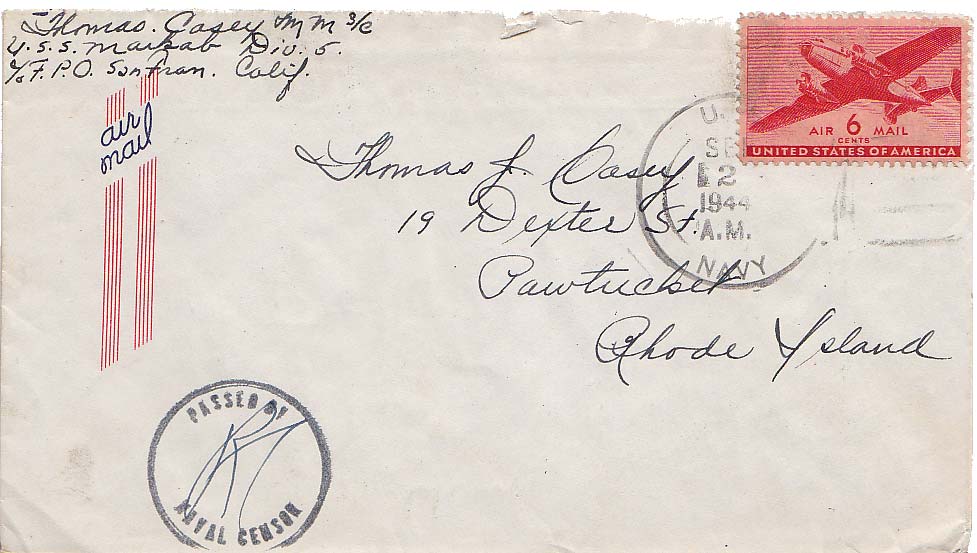 Thomas. Casey M M 3/c
U.S.S. Markab Div. 5.
c/o F.P.O. San Fran. Calif.
air
mail
AIR 6 MAIL
CENTS
UNITED STATES OF AMERICA
U.
SE
2
1944
A.M.
NAVY
Thomas J. Casey
19 Dexter St.
Pawtucket
Rhode Island
PASSED BY
NAVAL CENSOR